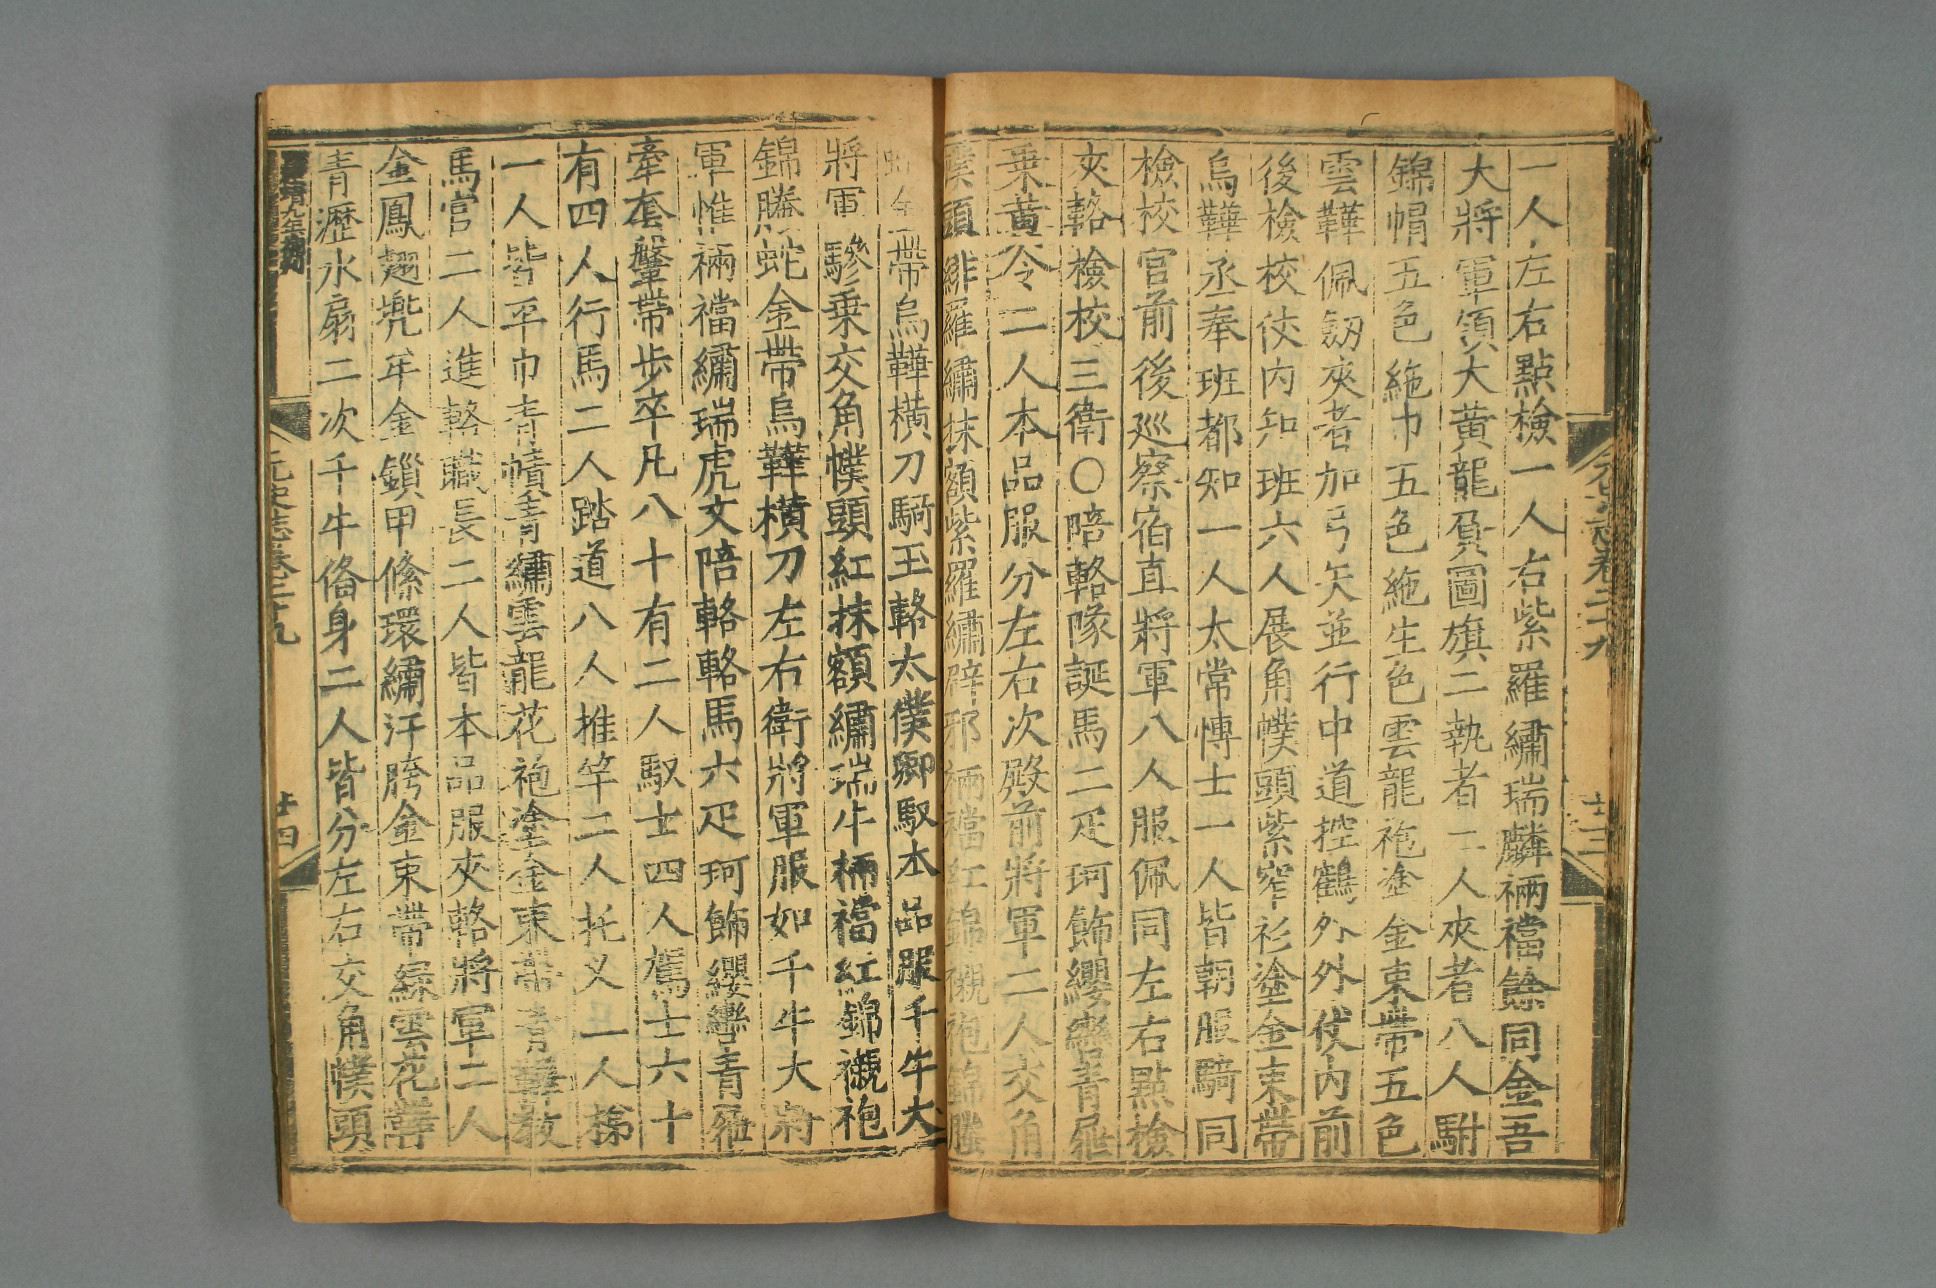 一人左右點檢一人右紫羅繡瑞麟裲襠餘同金吾
大將軍領大黃龍負圖旗二執者二人夾者八人駙
錦帽五色絁巾五色絁生色雲龍袍塗金束帶五色
雲鞾佩劔夾者加弓矢並行中道控鶴外外仗內前
後檢校仗內知班六人展角幞頭紫窄衫塗金束帶
烏鞾丞奉班都知一人太常博士一人皆朝服騎同
檢校官前後巡察宿直將軍八人服佩同左右點檢
夾輅檢校三衛〇陪輅隊誕馬二疋珂飾纓轡青屜
乗黃令二人本品服分左右次殿前將軍二人交角
幞頭緋羅繡抹額紫羅繡辟邪裲襠紅錦襯袍錦螣
蛇金帶烏鞾橫刀騎玉輅太僕卿馭本品服千牛大
將軍驂乗交角幞頭紅抹額繡瑞牛裲襠紅錦襯袍
錦螣蛇金帶烏鞾橫刀左右衛將軍服如千牛大將
軍惟裲襠繡瑞虎文陪輅輅馬六疋珂飾纓轡青屜
牽套鞶帶歩卒凡八十有二人馭士四人駕士六十
有四人行馬二人踏道八人推竿二人托义一人梯
一人皆平巾青幘青繡雲龍花袍塗金束帶青鞾教
馬官二人進輅職長二人皆本品服夾輅將軍二人
金鳳翅兠牟金鎖甲絛環繡汗胯金束帶綠雲花鞾
青瀝水扇二次千牛俻身二人皆分左右交角幞頭
元史志卷二十九
廿三
元史志卷二十九
廿四